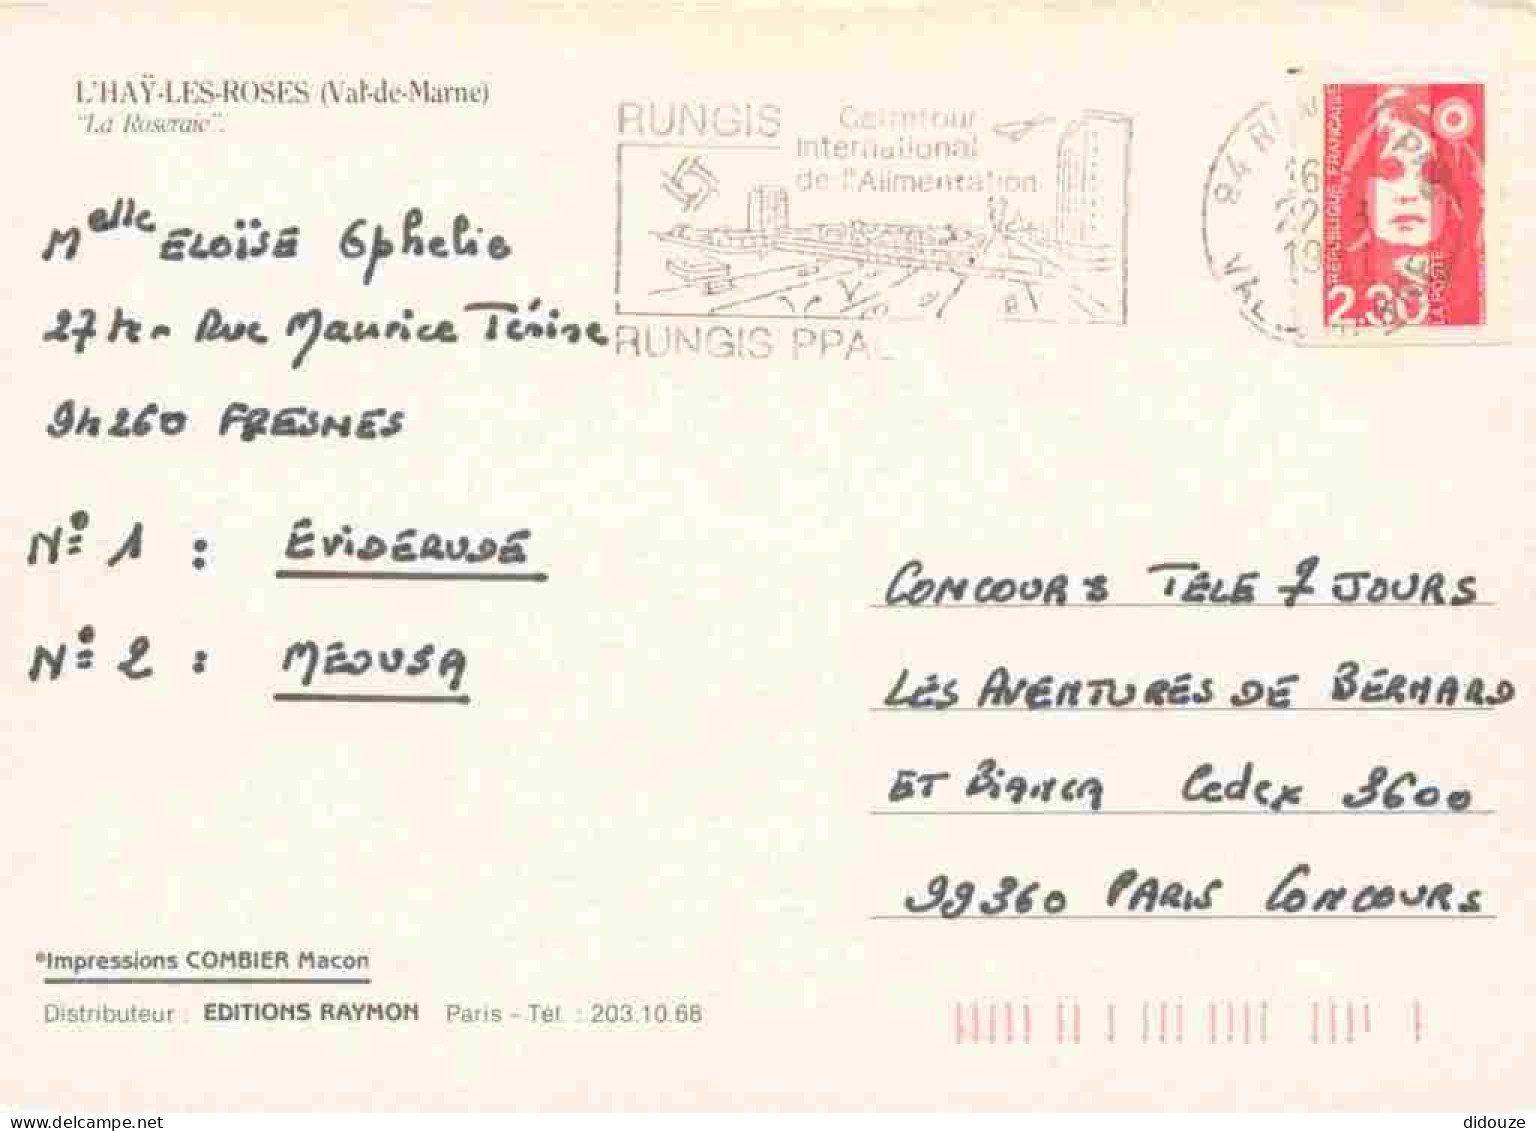 L'HAŸ-LES-ROSES (Val-de-Marne)
"La Roseraie".
RUNGIS
Carrefour
International
de l'Alimentation
RUNGIS PPAL
94 RUNGIS
VAL
RÉPUBLIQUE FRANÇAISE
2.30
LA POSTE
Melle ELOÏSE Ophelie
27 ter Rue Maurice Ténine
94260 FRESNES
N° 1 : EVIDERUDE
N° 2 : MEDUSA
CONCOURS TELE 7 JOURS
LES AVENTURES DE BERNARD
ET BIANCA Cedex 3600
99360 PARIS CONCOURS
*Impressions COMBIER Macon
Distributeur : EDITIONS RAYMON Paris - Tél. : 203.10.68
didouze